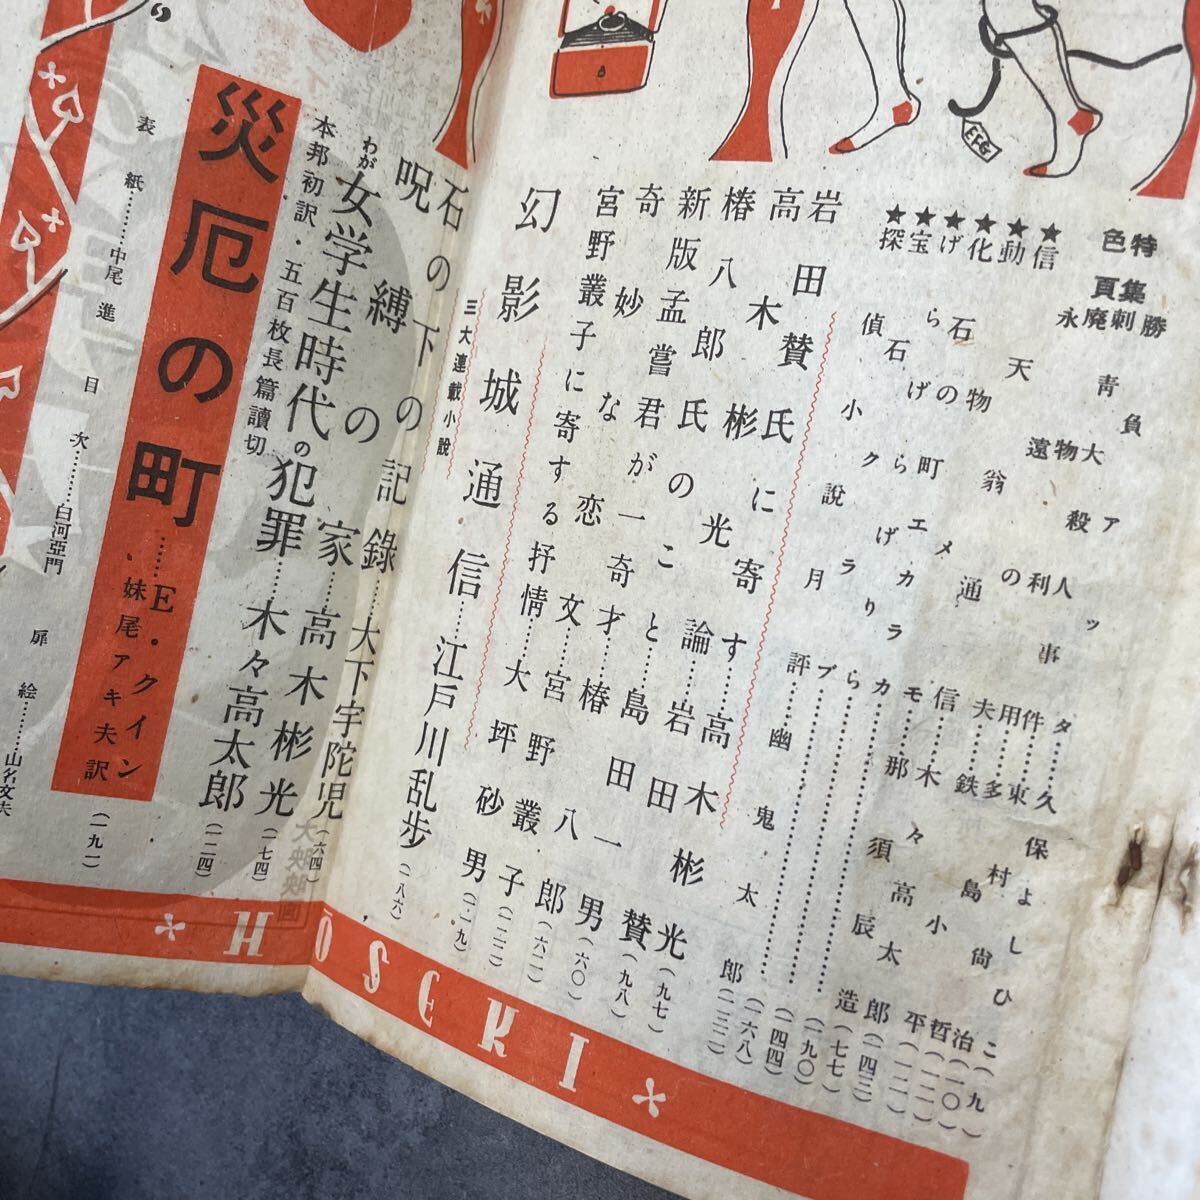 特集
色頁
勝負アッタ……久保よしひこ
刺青殺人事件
廃物大利用
永遠の夫
★信天翁通信……木々高太郎(一四三)
★動物メモ……那須辰造(七七)
★化石の町
★げらげら
★宝石クラブ……(一六八)
★探偵小説月評……幽鬼太郎(一三二)
岩田賛氏に寄す……高木彬光(九七)
高木彬光論……岩田賛(九八)
椿八郎氏のこと……島田一男(六〇)
新版孟嘗君が一奇才……椿八郎(六二)
奇妙な恋文……宮野叢子(一二二)
宮野叢子に寄する抒情……大坪砂男(一一九)
幻影城通信……江戸川乱歩(一八六)
三大連載小説
石の下の記録……大下宇陀児(六四)
呪縛の家……高木彬光(一七四)
わが女学生時代の犯罪……木々高太郎(一二四)
本邦初訳・五百枚長篇讀切
災厄の町……E・クイン、妹尾アキ夫訳(一九一)
表紙………中尾進 目次………白河亞門 扉絵………山名文夫
HŌSEKI
EFG